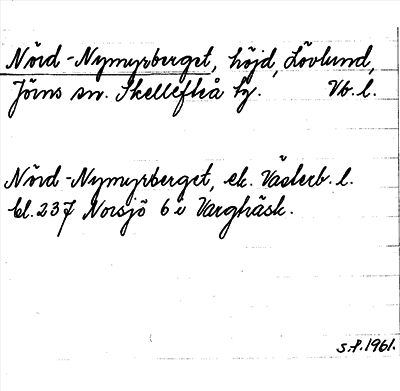 Nörd-Nymyrberget, höjd, Lövlund,
Jörns sn. Skellefteå hg. Vb. l.
Nörd-Nymyrberget, ek. Västerb. l.
bl. 237 Norsjö 6 i Vargträsk.
S.P. 1961.